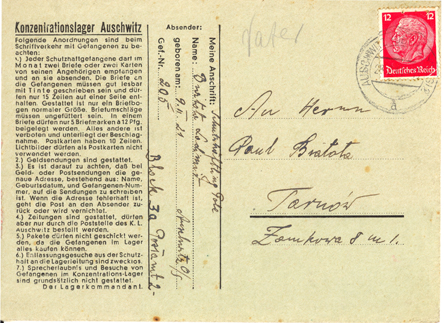 Konzentrationslager Auschwitz
Folgende Anordnungen sind beim
Schriftverkehr mit Gefangenen zu be-
achten:
1.) Jeder Schutzhaftgefangene darf im
Monat zwei Briefe oder zwei Karten
von seinen Angehörigen empfangen
und an sie absenden. Die Briefe an
die Gefangenen müssen gut lesbar
mit Tinte geschrieben sein und dür-
fen nur 15 Zeilen auf einer Seite ent-
halten. Gestattet ist nur ein Briefbo-
gen normaler Größe. Briefumschläge
müssen ungefüttert sein. In einem
Briefe dürfen nur 5 Briefmarken a 12 Pfg.
beigelegt werden. Alles andere ist
verboten und unterliegt der Beschlag-
nahme. Postkarten haben 10 Zeilen.
Lichtbilder dürfen als Postkarten nicht
verwendet werden.
2.) Geldsendungen sind gestattet.
3.) Es ist darauf zu achten, daß bei
Geld- oder Postsendungen die ge-
naue Adresse, bestehend aus: Name,
Geburtsdatum, und Gefangenen-Num-
mer, auf die Sendungen zu schreiben
ist. Wenn die Adresse fehlerhaft ist,
geht die Post an den Absender zu-
rück oder wird vernichtet.
4.) Zeitungen sind gestattet, dürfen
aber nur durch die Poststelle des K. L.
Auschwitz bestellt werden.
5.) Pakete dürfen nicht geschickt wer-
den, da die Gefangenen im Lager
alles kaufen können.
6.) Entlassungsgesuche aus der Schutz-
haft an die Lagerleitung sind zwecklos.
7.) Sprecherlaubnis und Besuche von
Gefangenen im Konzentrations-Lager
sind grundsätzlich nicht gestattet.
Der Lagerkommandant.
Absender:
Meine Anschrift: Schutzhäftling Pole
Name:
geboren am: 9.II.21
Gef.-Nr. 205
Block 3a Postamt 2
Vater
12 12
Deutsches Reich
AUSCHWITZ
a
An Herrn
Paul Bratota
Tarnów
Zamkowa 8 m 1.